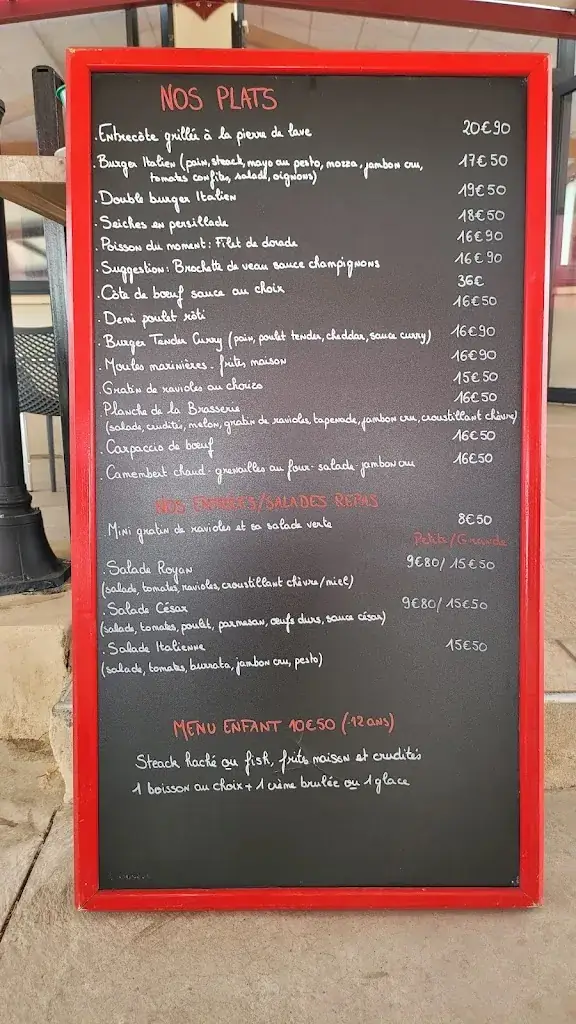 NOS PLATS
. Entrecôte grillée à la pierre de lave 20€90
. Burger Italien (pain, steack, mayo au pesto, mozza, jambon cru, 17€50
tomates confites, salade, oignons)
. Double burger Italien 19€50
. Seiches en persillade 18€50
. Poisson du moment : Filet de dorade 16€90
. Suggestion : Brochette de veau sauce champignons 16€90
. Côte de boeuf sauce au choix 36€
. Demi poulet rôti 16€50
. Burger Tender Curry (pain, poulet tender, cheddar, sauce curry) 16€90
. Moules marinières - frites maison 16€90
. Gratin de ravioles au chorizo 15€50
. Planche de la Brasserie 16€50
(salade, crudités, melon, gratin de ravioles, tapenade, jambon cru, croustillant chèvre)
. Carpaccio de boeuf 16€50
. Camembert chaud - grenailles au four - salade - jambon cru 16€50
NOS ENTRÉES/SALADES REPAS
. Mini gratin de ravioles et sa salade verte 8€50
Petite/Grande
. Salade Royan 9€80/15€50
(salade, tomates, ravioles, croustillant chèvre/miel)
. Salade César 9€80/15€50
(salade, tomates, poulet, parmesan, oeufs durs, sauce césar)
. Salade Italienne 15€50
(salade, tomates, burrata, jambon cru, pesto)
MENU ENFANT 10€50 (-12 ans)
Steack haché ou fish, frites maison et crudités
1 boisson au choix + 1 crème brulée ou 1 glace